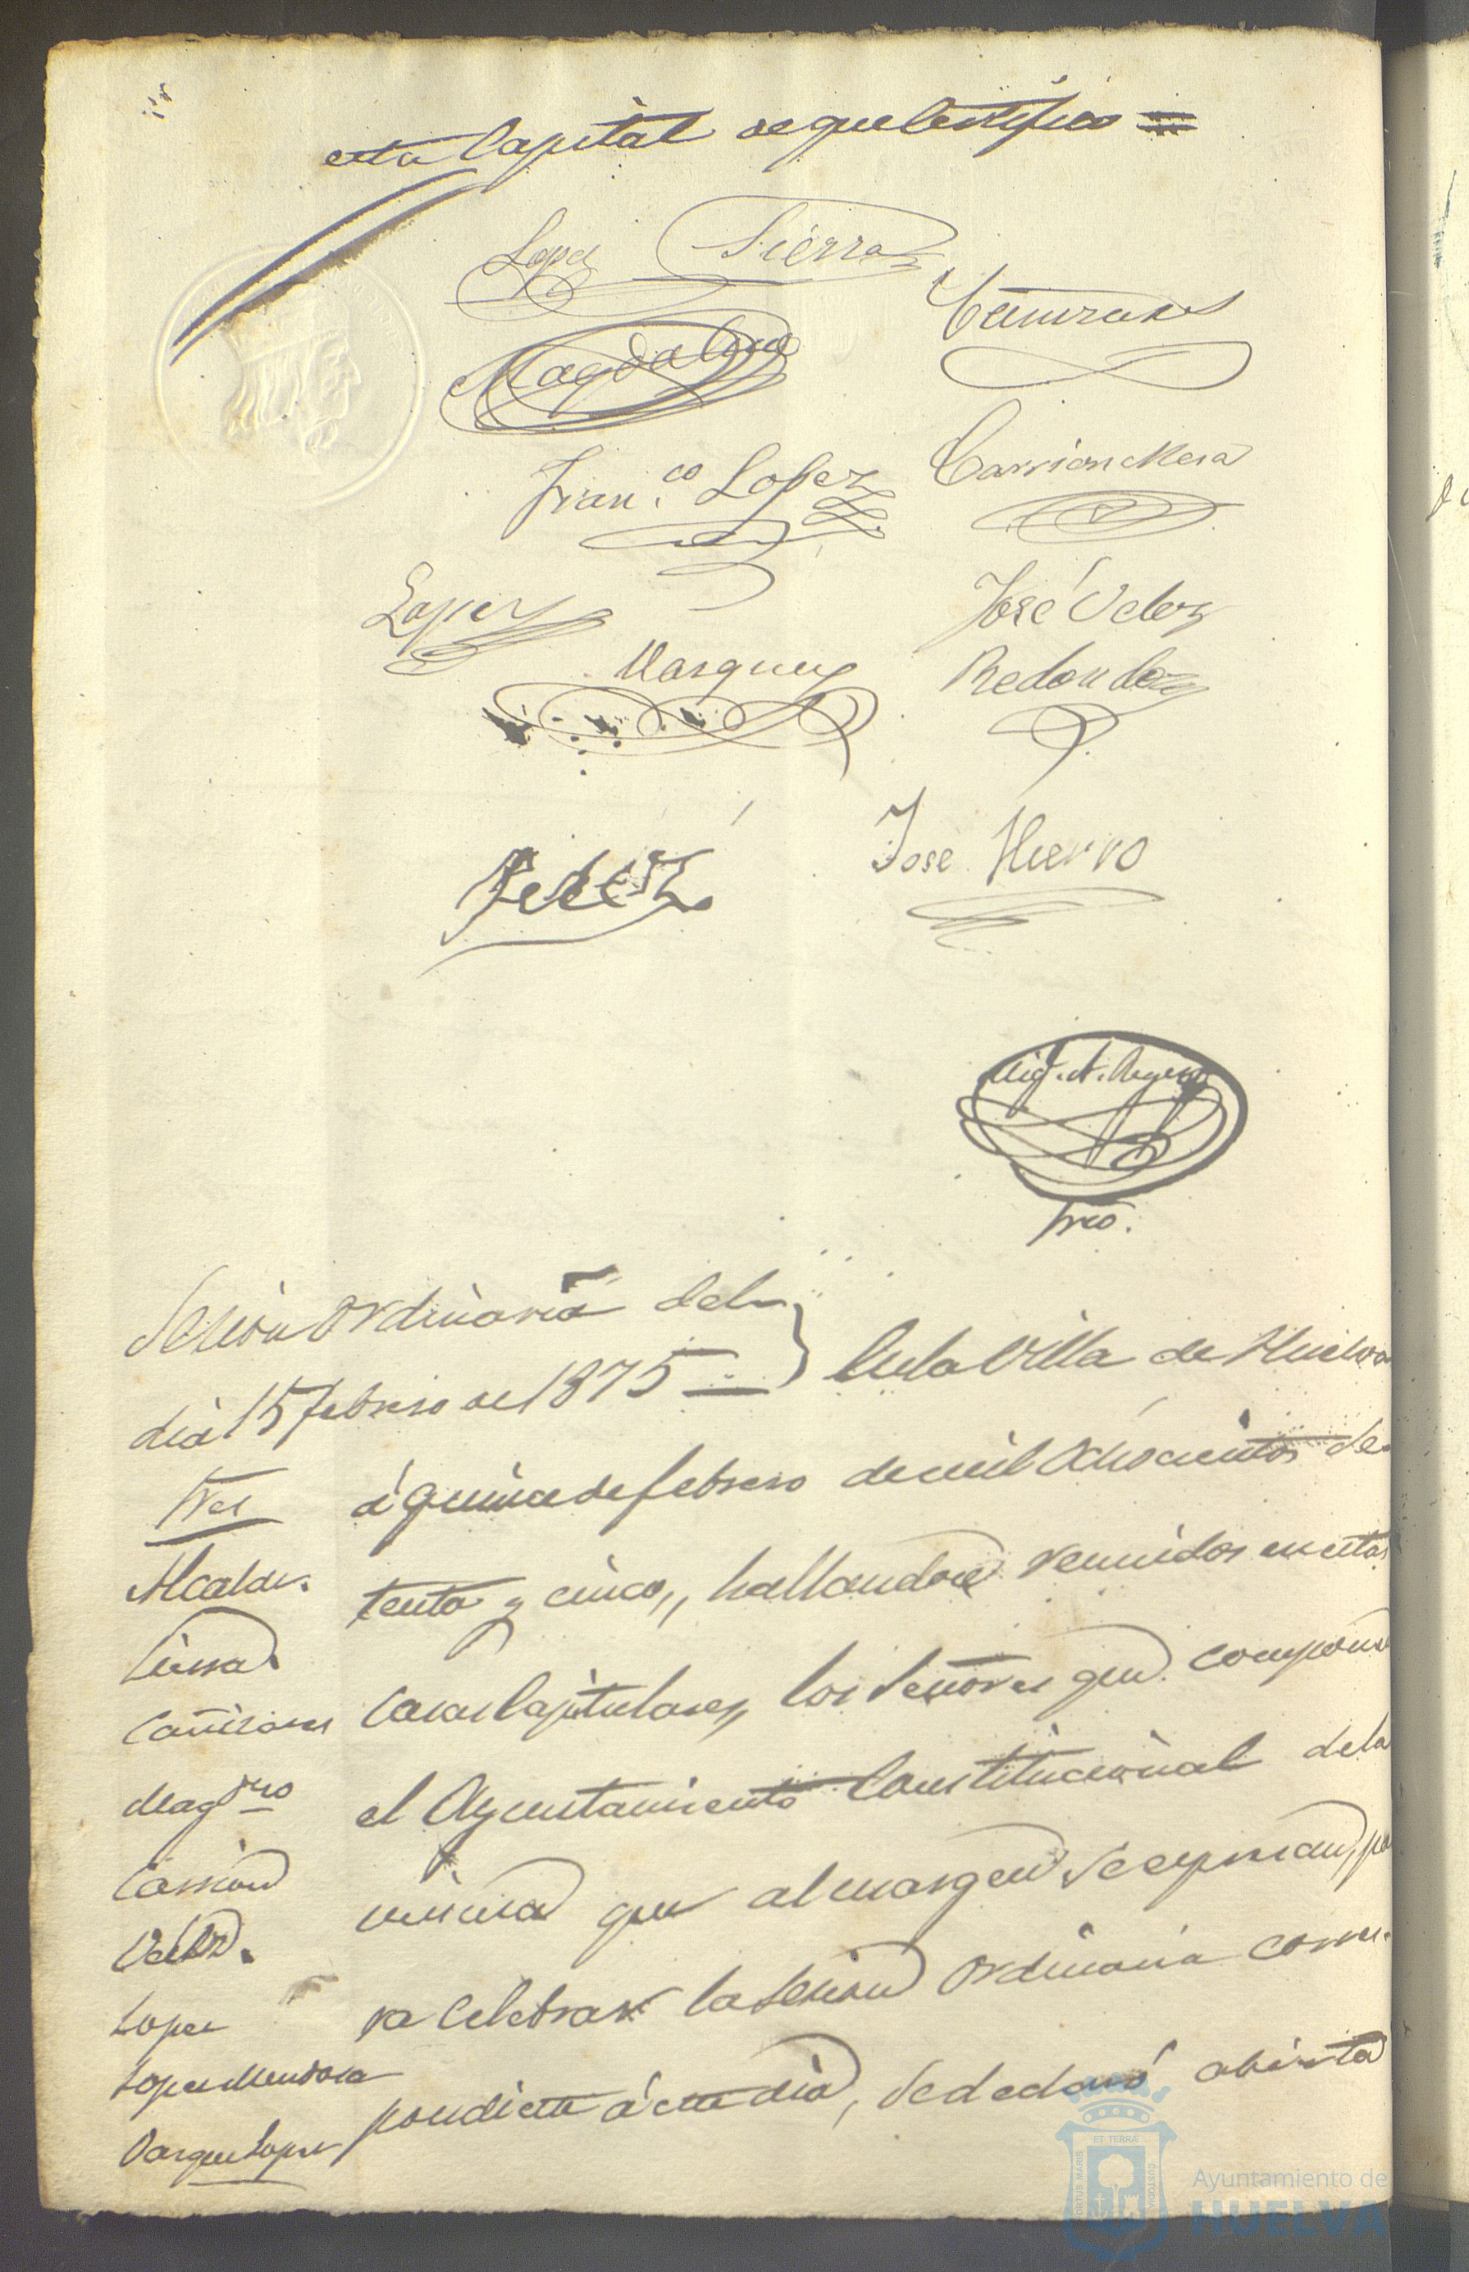 esta Capital de que Certifico =
Lopez Sierra
Cañizares
Magdaleno
Fran.co Lopez Carrion Mesa
Lopez José Velez
Vazquez Redondo
Perez José Hierro
Srio.
Sesion ordinaria del
dia 15 febrero de 1875 = En la Villa de Huelva
á quince de febrero de mil ochocientos se
tenta y cinco, hallandose reunidos en estas
Casas Capitulares, los Señores que compone
el Ayuntamiento Constitucional de la
misma que al margen se espresan, pa
ra Celebrar la Sesion Ordinaria corres
pondiente á este dia, se declaró abierta
Sres
Alcalde.
Sierra.
Cañizares
Magno
Carrion
Velez.
Lopez
Lopez Mendoza
Vazquez Lopez
PORTUS MARIS
ET TERRÆ
CUSTODIA
Ayuntamiento de
HUELVA